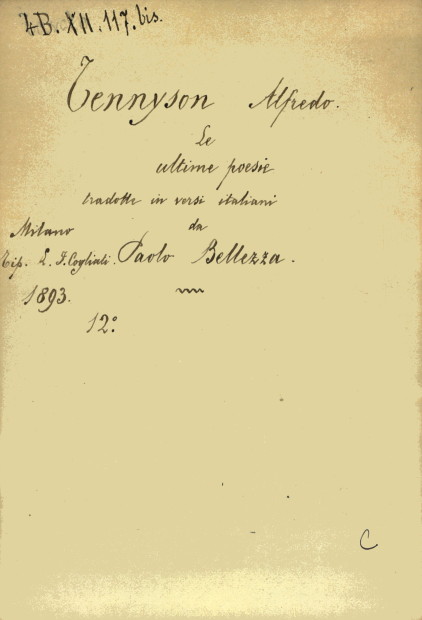 4B. XII. 117. bis.
Tennyson Alfredo.
Le
ultime poesie
tradotte in versi italiani
da
Paolo Bellezza.
Milano
Tip. L. F. Cogliati.
1893.
12°
C